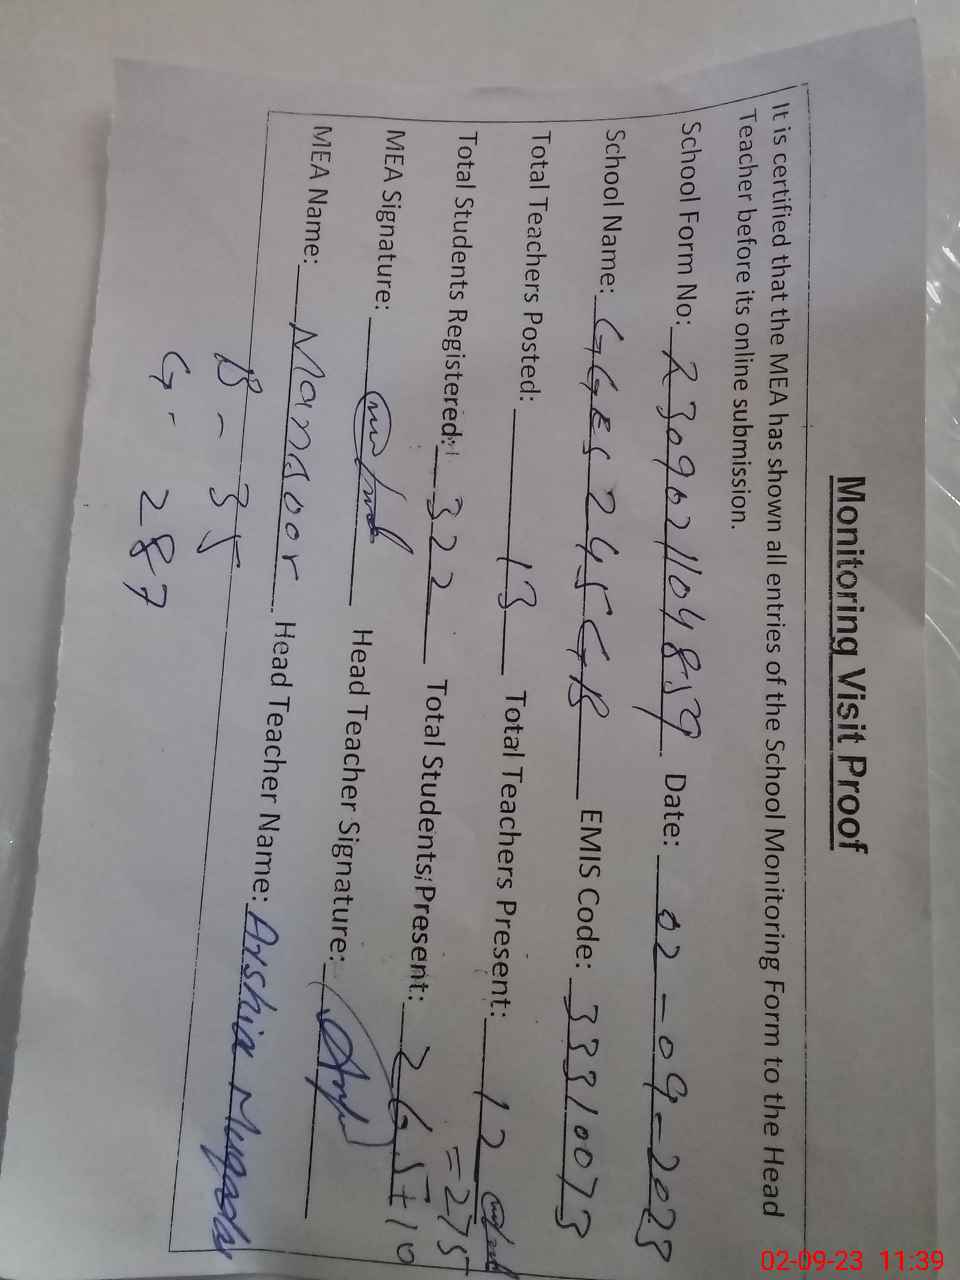 Monitoring Visit Proof
It is certified that the MEA has shown all entries of the School Monitoring Form to the Head
Teacher before its online submission.
School Form No: 2309021104839 Date: 02-09-2023
School Name: GGES 245 GB EMIS Code: 33310073
Total Teachers Posted: 13 Total Teachers Present: 12
Total Students Registered: 322 Total Students Present: 265+10
=275
MEA Signature: Head Teacher Signature:
MEA Name: Mansoor Head Teacher Name: Arshia
B - 35
G - 287
02-09-23 11:39